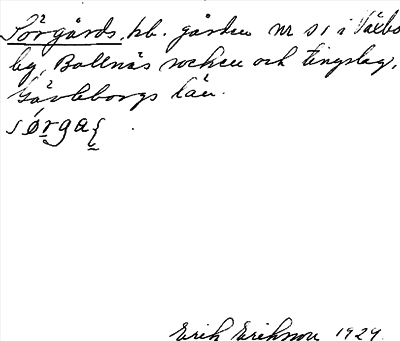 Sörgårds, hb. gården nr 51 i Växbo
by, Bollnäs socken och tingslag,
Gävleborgs län.
Erik Erikson 1929.